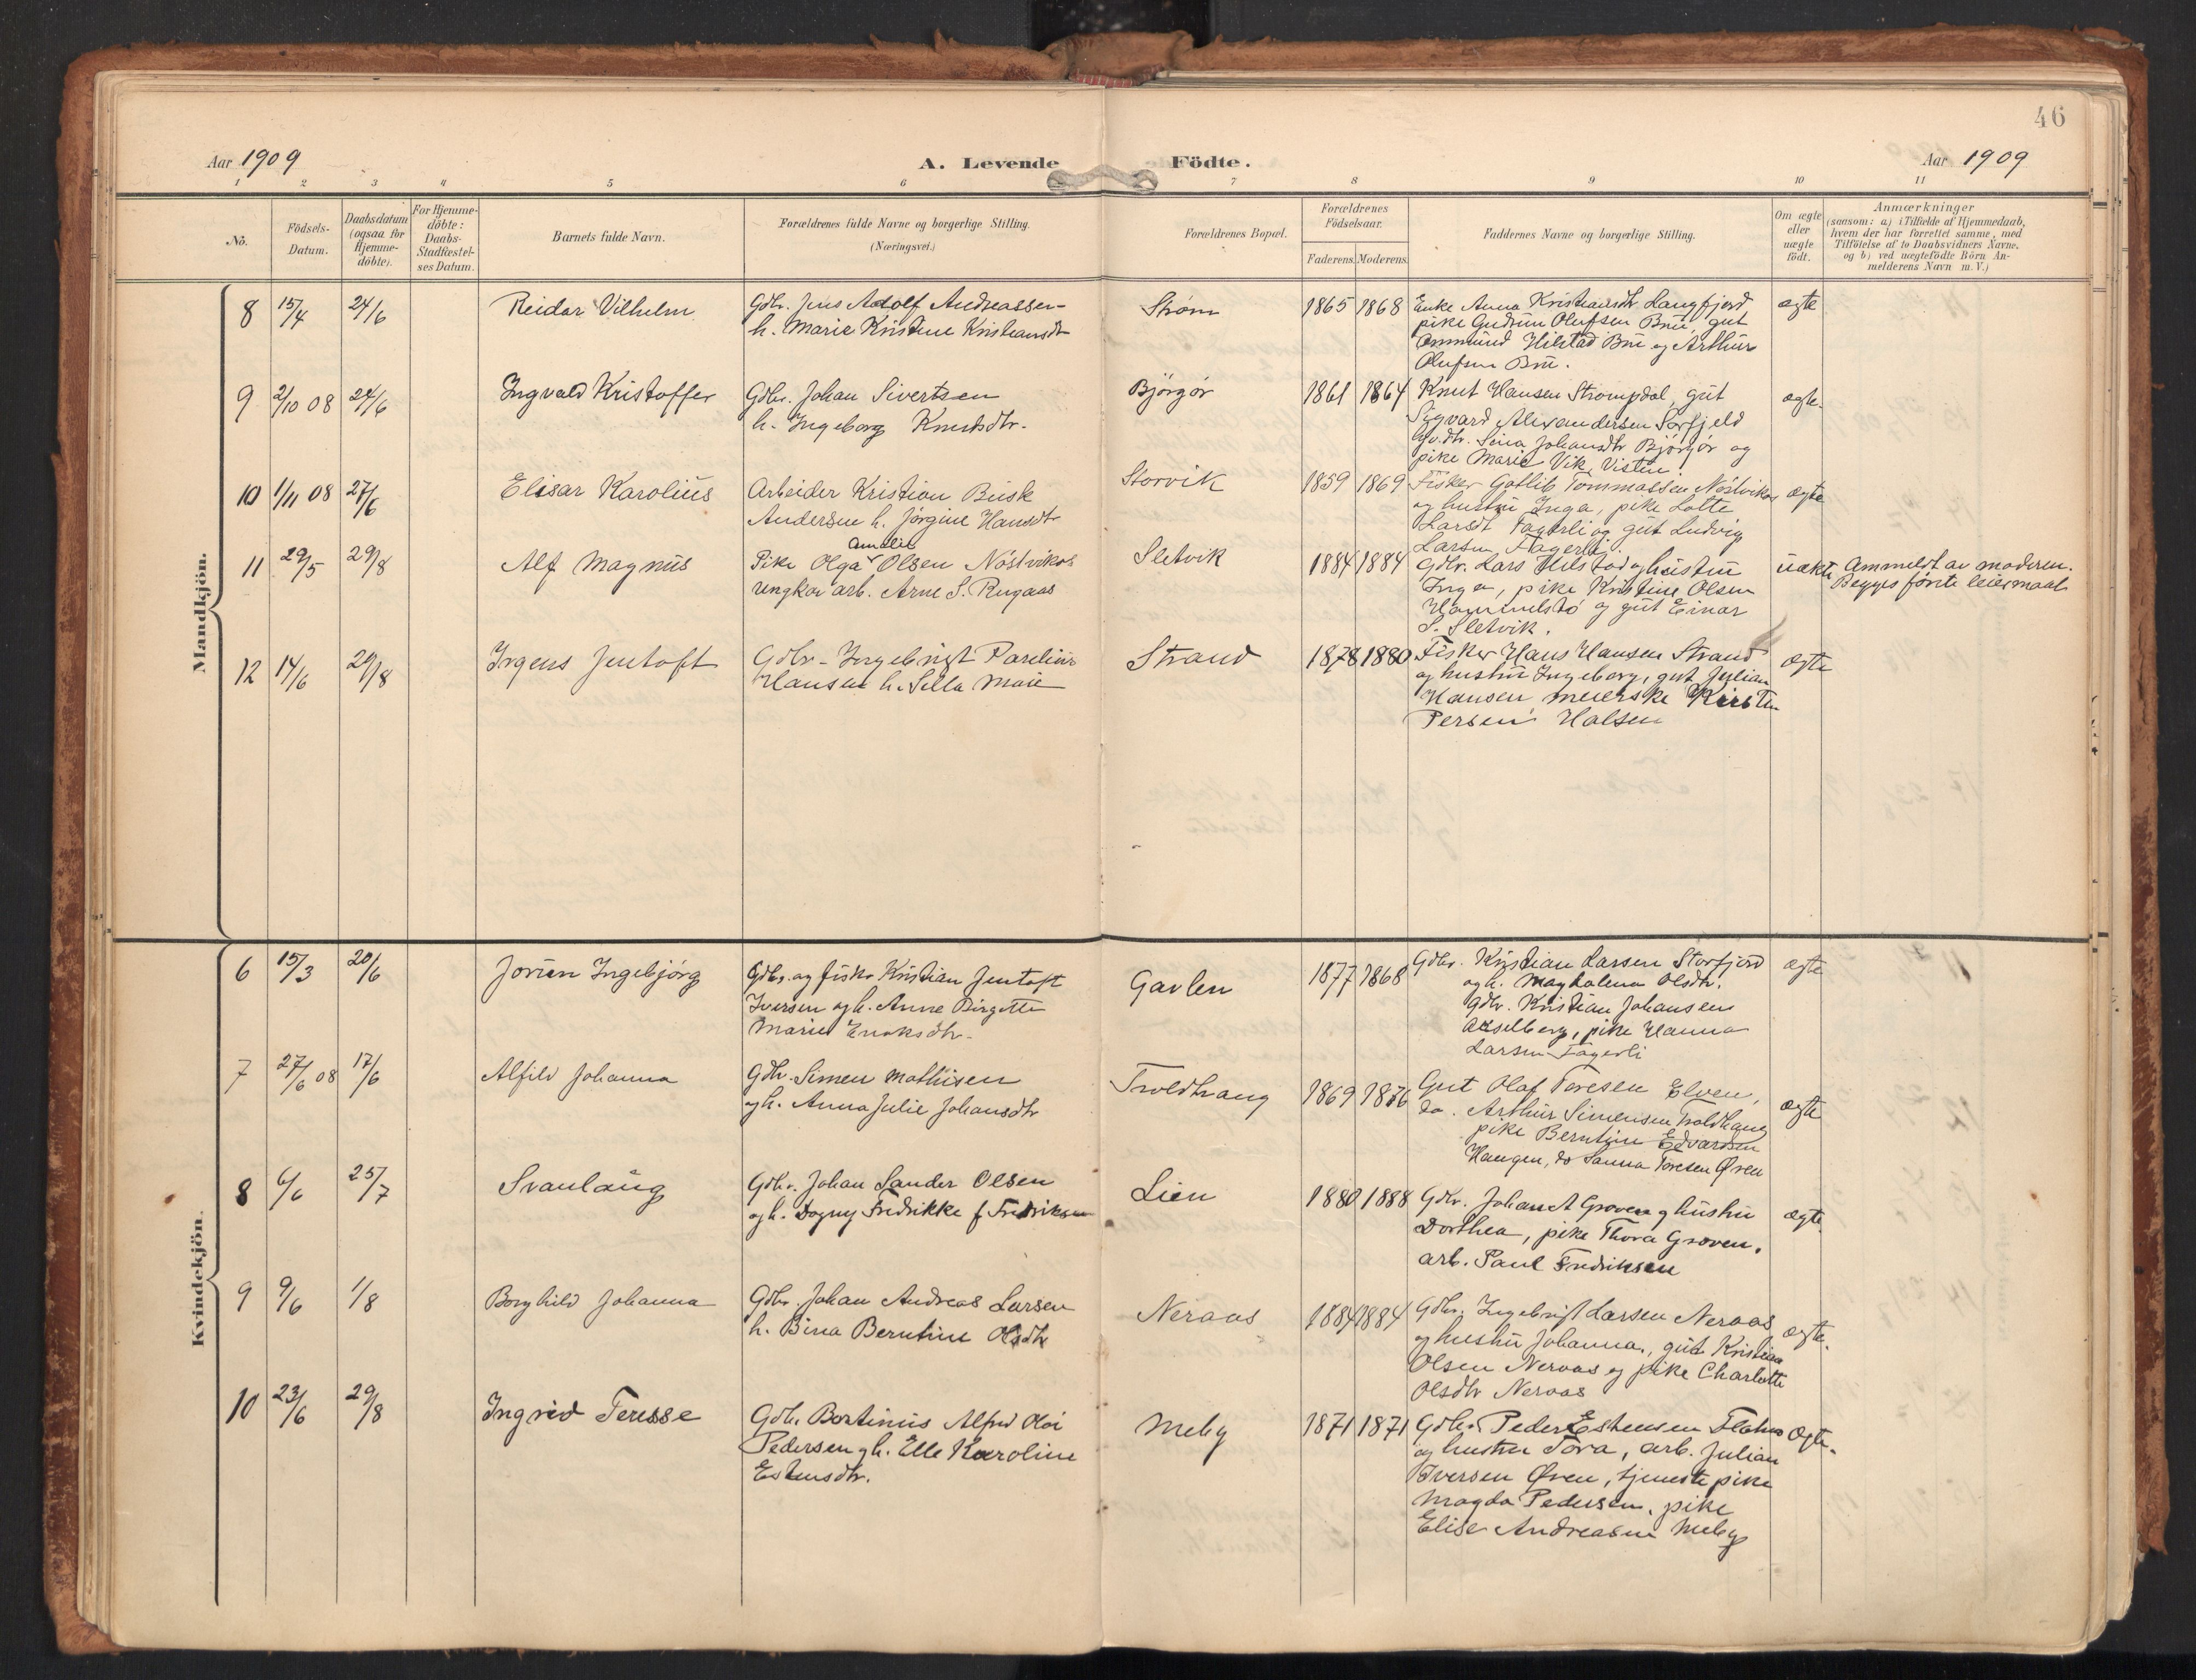 46
Aar 1909
A. Levende Födte.
Aar 1909
1 2 3 4 5 6 7 8 9 10 11
No.
Födsels-Datum.
Daabsdatum (ogsaa for Hjemme-döbte).
For Hjemme-döbte: Daabs-Stadfæstel-ses Datum.
Barnets fulde Navn.
Forældrenes fulde Navne og borgerlige Stilling.
(Næringsvei.)
Forældrenes Bopæl.
Forældrenes Födselsaar.
Faderens. Moderens.
Faddernes Navne og borgerlige Stilling.
Om ægte eller uægte födt.
Anmærkninger
(saasom: a) i Tilfælde af Hjemmedaab,
hvem der har forrettet samme, med
Tilföielse af to Daabsvidners Navne.
og b) ved uægtefödte Börn An-
melderens Navn m. V.)
Mandkjön.
8 15/4 24/6 Reidar Vilhelm
Gdbr. Jens Adolf Andreassen
h. Marie Kristine Kristiansdtr
Strøm 1865 1868
Enke Anna Kristiansdtr Langfjord
pike Gudrun Olufsen Bru, gut
Ommund Hilstad Bru og Arthur
Olufsen Bru.
ægte
9 2/10 08 24/6 Ingvald Kristoffer
Gdbr. Johan Sivertsen
h. Ingeborg Knutsdtr.
Bjørgør 1861 1864
Knut Hansen Strompdal, gut
Sigvard Alexandersen Sørfjeld
Sina Johansdtr Bjørgør og
pike Marie Vik, Visten.
ægte.
10 1/11 08 27/6 Elisar Karolius
Arbeider Kristian Busk
Andersen h. Jørgine Hansdtr
Storvik 1859 1869
Fisker Gotlib Tommassen Nøstvikos
og hustru Inga, pike Lotte
Larsdt Fagerli og gut Ludvig
Larsen Fagerli.
ægte
11 29/5 29/8 Alf Magnus
Pike Olga Amalie Olsen Nøstvikos
ungkar arb. Arne S. Rugaas
Sletvik 1884 1884
Gdbr. Lars Hilstad og hustru
Inga, pike Kristine Olsen
Hammelstø og gut Einar
S. Sletvik.
uækte
Anmeldt av moderen.
Begges første leiermaal.
12 14/6 29/8 Irgens Jentoft
Gdbr. Ingebrigt Parelius
Hansen h. Sella Marie
Strand 1878 1880
Fisker Hans Hansen Strand
og hustru Ingeborg, gut Julian
Hansen, meierske Kirsten
Persen Halsen
ægte
Kvindekjön.
6 15/3 20/6 Jorun Ingebjørg
Gdbr. og fisker Kristian Jentoft
Iversen og h. Anne Birgitte
Marie Enoksdtr.
Gavlen 1877 1868
Gdbr. Kristian Larsen Storfjord
og h. Magdalena Olsdtr.
Gdbr. Kristian Johansen
Axselberg, pike Hanna
Larsen Fagerli
ægte
7 27/6 08 17/6 Alfild Johanna
Gdbr. Simen Mathisen
og h. Anna Julie Johansdtr
Troldhaug 1869 1876
Gut Olaf Toresen Elven,
do. Arthur Simensen Troldhaug
pike Berntine Edvardsen
Haugen, do Sanna Toresen Øren
ægte
8 6/6 25/7 Svanlaug
Gdbr. Johan Sander Olsen
og h. Dagny Fredrikke f Fredriksen
Lien 1880 1888
Gdbr. Johan A Groven og hustru
Dorthea, pike Thora Groven.
arb. Paul Fredriksen
ægte.
9 9/6 1/8 Borghild Johanna
Gdbr. Johan Andreas Larsen
h. Bina Berntine Olsdtr
Neraas 1884 1884
Gdbr. Ingebrigt Larsen Neraas
og hustru Johanna., gut Kristian
Olsen Neraas og pike Charlotte
Olsdtr Neraas
ægte.
10 23/6 29/8 Ingrid Teresse
Gdbr. Bortinius Alfred
Pedersen og h. Elle Karoline
Estensdtr.
Meby 1871 1871
Gdbr. Peder Estensen Flatmo
og hustru Tora, arb. Julian
Iversen Øren, tjenestepike
Magda Pedersen, pike
Elise Andreasen Meby
Ægte.